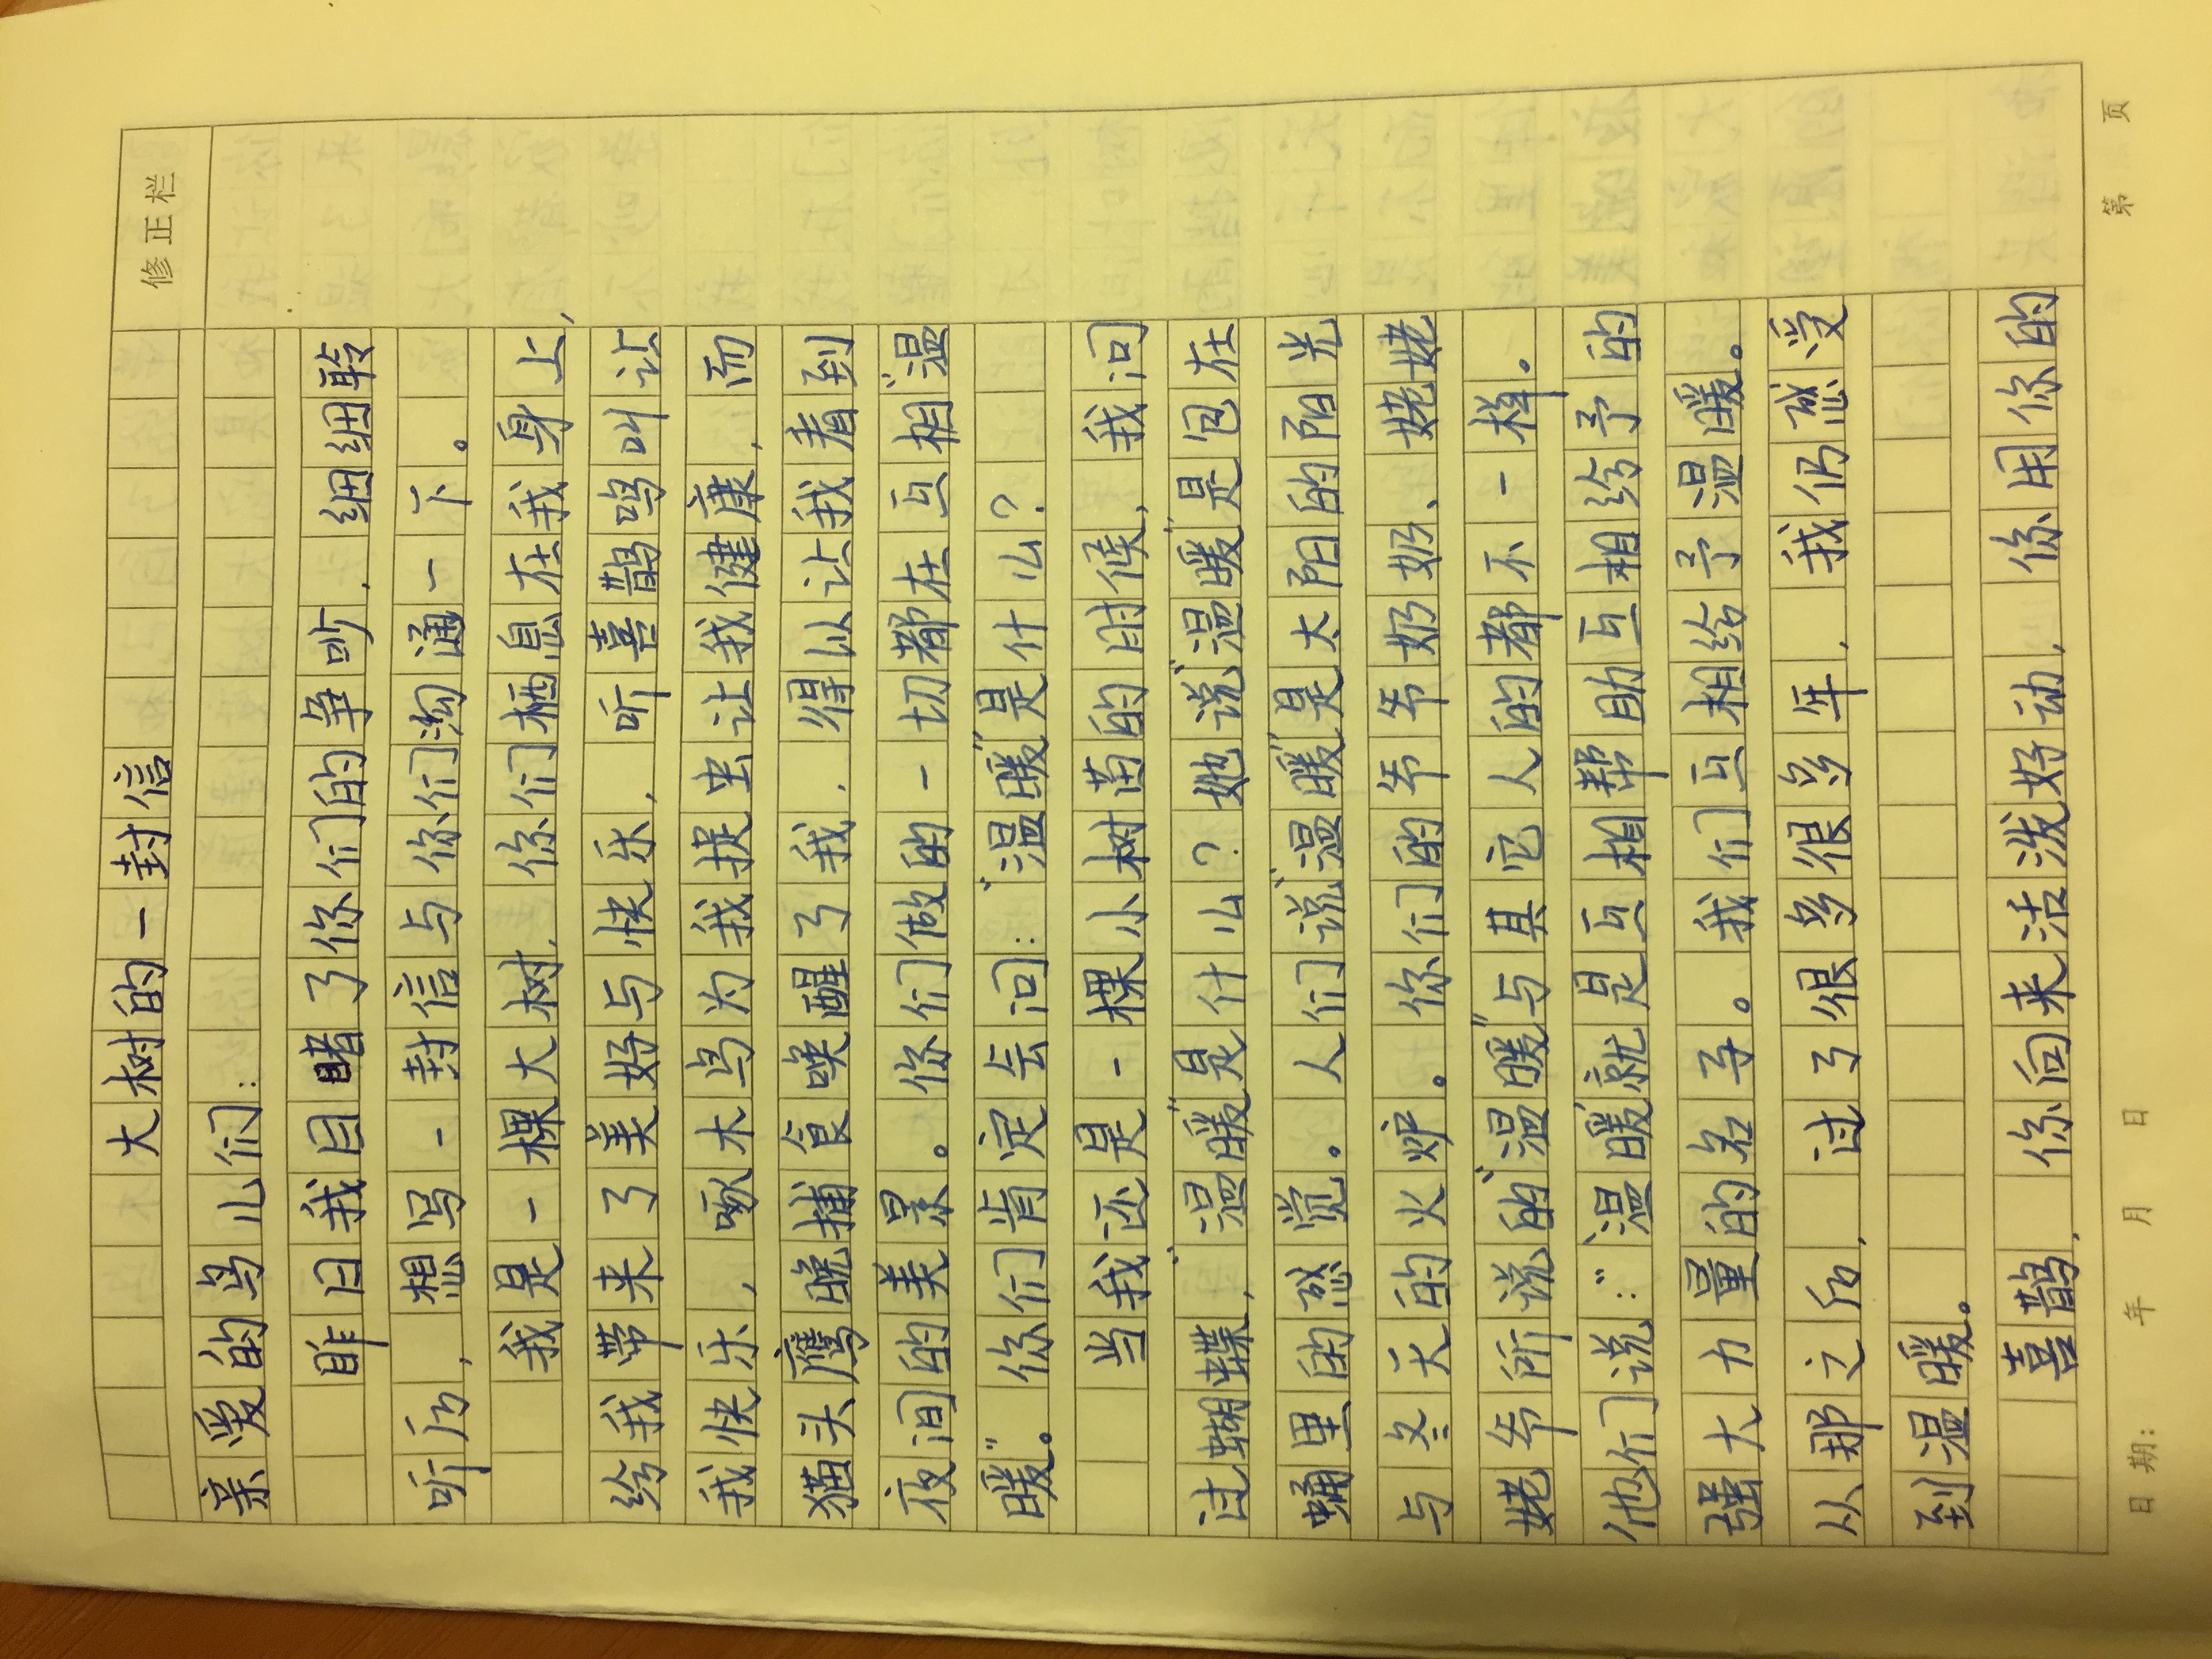 修正栏
大树的一封信
亲爱的鸟儿们：
昨日我目睹了你们的争吵，细细聆
听后，想写一封信与你们沟通一下。
我是一棵大树，你们栖息在我身上，
给我带来了美好与快乐，听喜鹊鸣叫让
我快乐，啄木鸟为我捉虫让我健康，而
猫头鹰晚捕食唤醒了我，得以让我看到
夜间的美景。你们做的一切都在互相“温
暖”。你们肯定会问：“温暖”是什么？
当我还是一棵小树苗的时候，我问
过蝴蝶，“温暖”是什么？她说“温暖”是包在
蛹里的感觉。人们说“温暖”是太阳的阳光
与冬天的火炉。你们的爷爷奶奶、姥姥
姥爷所说的“温暖”与其它人的都不一样。
他们说：“温暖就是互相帮助互相给予的
强大力量的名字。我们互相给予温暖。
从那之后，过了很多很多年，我仍感受
到温暖。
喜鹊，你向来活泼好动，你用你的
日期： 年 月 日 第 页